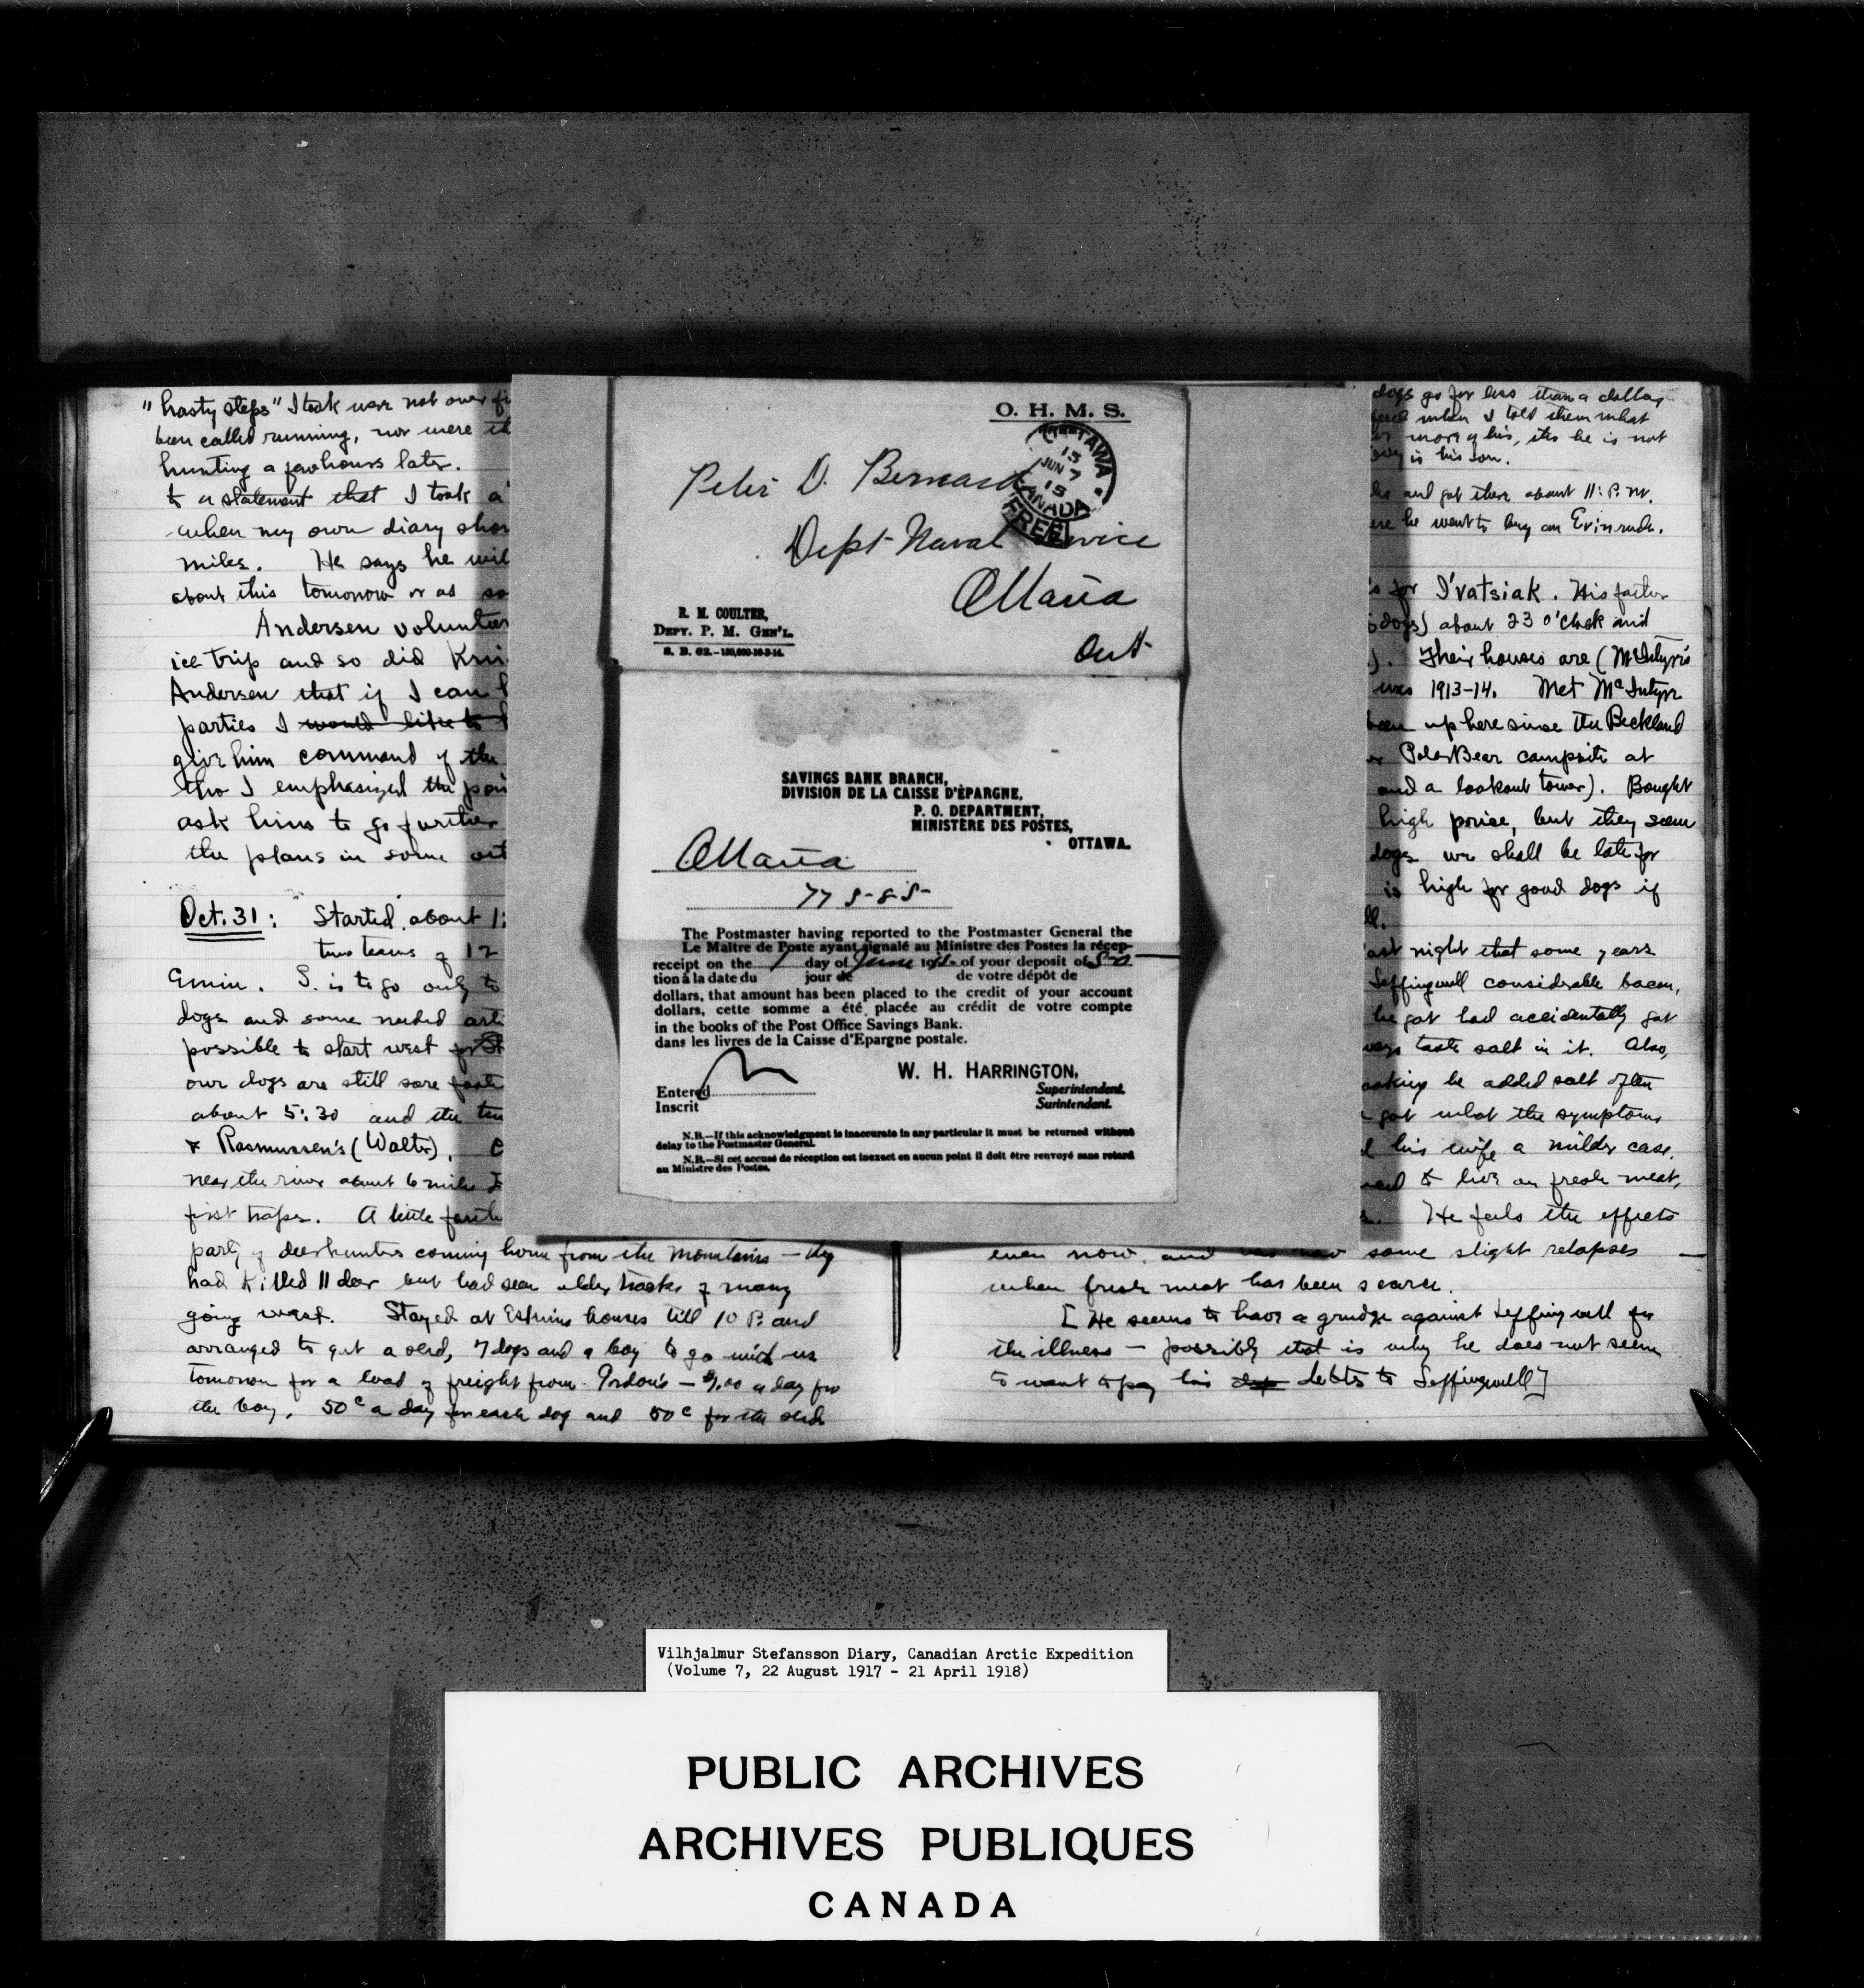 "hasty steps" I took were not over
been called running, nor were
hunting a few hours later.
to a statement that I took a
when my own diary
miles. He says he
about this tomorrow or as
Andersen
ice trip and so did
Andersen that if I can
parties I would like to
give him command of the
tho I emphasized the
ask him to go further
the plans in some
Oct. 31: Started about 1:
two teams of 12
Emiu. S. is to go only to
dogs and some needed
possible to start west for
our dogs are still sore
about 5:30 and the
& Rasmussen's (Walter).
near the river about 6 miles
first traps. A little
party of deerhunters coming home from the mountains — they
had killed 11 deer but had seen older tracks of many
going west. Stayed at houses till 10 P. and
arranged to get a sled, 7 dogs and a boy to go with us
tomorrow for a load of freight from Gordon's — a day for
the boy, 50¢ a day for each dog and 50¢ for the sled
O. H. M. S.
OTTAWA
15
JUN 7
15
CANADA
FREE
Peter D. Bernard
Dept Naval Service
Ottawa
Ont
R. M. COULTER,
DEPY. P. M. GEN'L.
SAVINGS BANK BRANCH,
DIVISION DE LA CAISSE D'ÉPARGNE,
P. O. DEPARTMENT,
MINISTÈRE DES POSTES,
OTTAWA.
Ottawa
The Postmaster having reported to the Postmaster General the
Le Maître de Poste ayant signalé au Ministre des Postes la récep-
receipt on the day of June of your deposit of
tion à la date du jour de de votre dépôt de
dollars, that amount has been placed to the credit of your account
dollars, cette somme a été placée au crédit de votre compte
in the books of the Post Office Savings Bank.
dans les livres de la Caisse d'Epargne postale.
W. H. HARRINGTON,
Entered
Superintendent.
Inscrit
Surintendant.
N.B.—If this acknowledgment is inaccurate in any particular it must be returned without
delay to the Postmaster General.
N.B.—Si cet accusé de réception est inexact en aucun point il doit être renvoyé sans retard
au Ministre des Postes.
dogs go for less than a dollar
when I told them what
more of his, tho he is not
boy is his son.
and got there about 11: P. M.
he went to buy an Evinrude.
for I'vatsiak. His father
dogs) about 23 o'clock and
Their houses are (McIntyre's
was 1913-14. Met McIntyre
been up here since the Beckland
Polar Bear campsite at
and a lookout tower). Bought
high price, but they seem
dogs we shall be late for
is high for good dogs if
last night that some years
Leffingwell considerable bacon,
he got had accidentally got
taste salt in it. Also,
he added salt often
got what the symptoms
his wife a milder case.
to live on fresh meat,
He feels the effects
even now, and some slight relapses —
when fresh meat has been scarce.
[He seems to have a grudge against Leffingwell for
the illness — possibly that is why he does not seem
to want to pay his debts to Leffingwell]
Vilhjalmur Stefansson Diary, Canadian Arctic Expedition
(Volume 7, 22 August 1917 - 21 April 1918)
PUBLIC ARCHIVES
ARCHIVES PUBLIQUES
CANADA